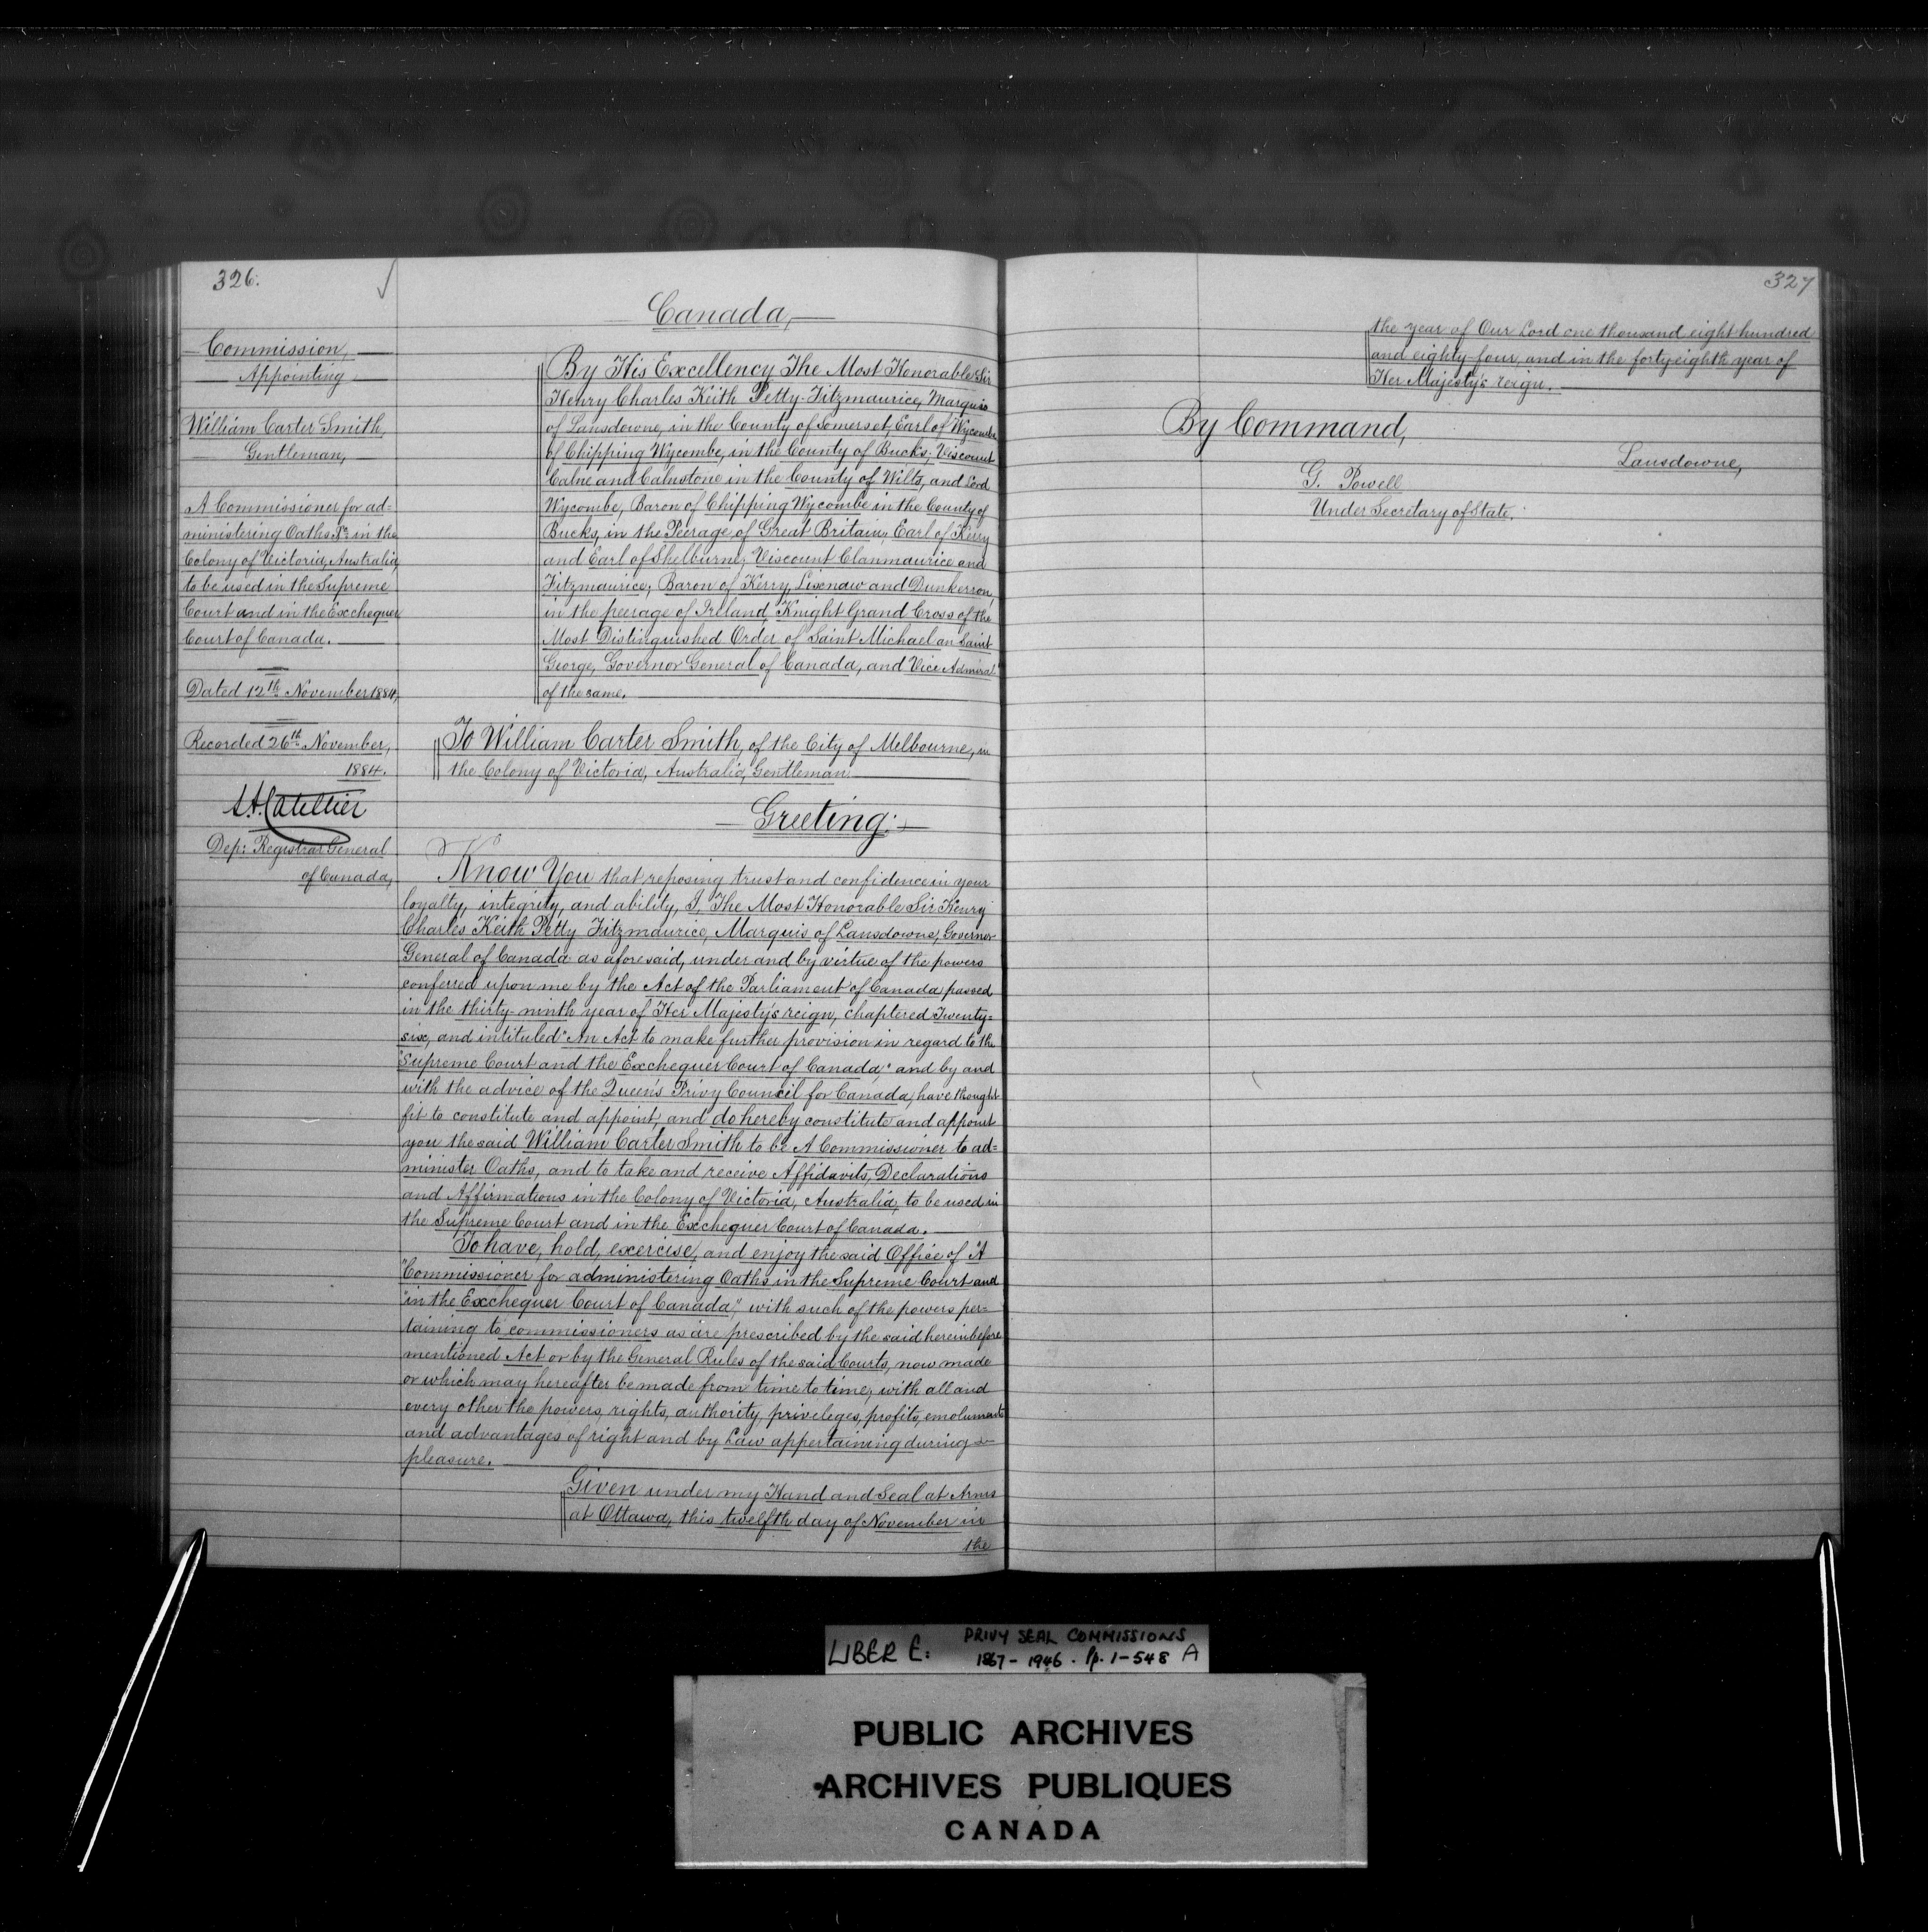 326.
Commission,
Appointing
William Carter Smith,
Gentleman,
A Commissioner for ad-
ministering Oaths &c. in the
Colony of Victoria, Australia,
to be used in the Supreme
Court and in the Exchequer
Court of Canada.
Dated 12th November 1884,
Recorded 26th November,
1884.
Dep: Registrar General
of Canada,
Canada,
By His Excellency The Most Honorable Sir
Henry Charles Keith Petty-Fitzmaurice, Marquis
of Lansdowne, in the County of Somerset, Earl of Wycombe
of Chipping Wycombe, in the County of Bucks; Viscount
Calne and Calnstone in the County of Wilts, and Lord
Wycombe, Baron of Chipping Wycombe in the County of
Bucks, in the Peerage of Great Britain, Earl of Kerry
and Earl of Shelburne; Viscount Clanmaurice and
Fitzmaurice; Baron of Kerry, Lixnaw and Dunkerron,
in the peerage of Ireland, Knight Grand Cross of the
Most Distinguished Order of Saint Michael an Saint
George, Governor General of Canada, and Vice Admiral
of the same.
To William Carter Smith, of the City of Melbourne, in
the Colony of Victoria, Australia, Gentleman.
Greeting:
Know You that reposing trust and confidence in your
loyalty, integrity, and ability, I, The Most Honorable Sir Henry
Charles Keith Petty Fitzmaurice, Marquis of Lansdowne, Governor
General of Canada as aforesaid, under and by virtue of the powers
conferred upon me by the Act of the Parliament of Canada passed
in the thirty-ninth year of Her Majesty's reign, chaptered Twenty=
six, and intituled "An Act to make further provision in regard to the
"Supreme Court and the Exchequer Court of Canada," and by and
with the advice of the Queen's Privy Council for Canada, have thought
fit to constitute and appoint, and do hereby constitute and appoint
you the said William Carter Smith to be A Commissioner to ad=
minister Oaths, and to take and receive Affidavits, Declarations
and Affirmations in the Colony of Victoria, Australia, to be used in
the Supreme Court and in the Exchequer Court of Canada.
To have, hold, exercise, and enjoy the said Office of "A
"Commissioner for administering Oaths in the Supreme Court and
"in the Exchequer Court of Canada," with such of the powers per=
taining to commissioners as are prescribed by the said hereinbefore
mentioned Act or by the General Rules of the said Courts, now made
or which may hereafter be made from time to time, with all and
every other the powers, rights, authority, privileges, profits, emoluments
and advantages of right and by Law appertaining during
pleasure.
Given under my Hand and Seal at Arms
at Ottawa, this twelfth day of November in
the
327
the year of Our Lord one thousand eight hundred
and eighty-four, and in the forty-eighth year of
Her Majesty's reign.
By Command,
Lansdowne,
G. Powell
Under Secretary of State.
LIBER E: PRIVY SEAL COMMISSIONS
1867 - 1946 - Pp. 1-548 A
PUBLIC ARCHIVES
ARCHIVES PUBLIQUES
CANADA